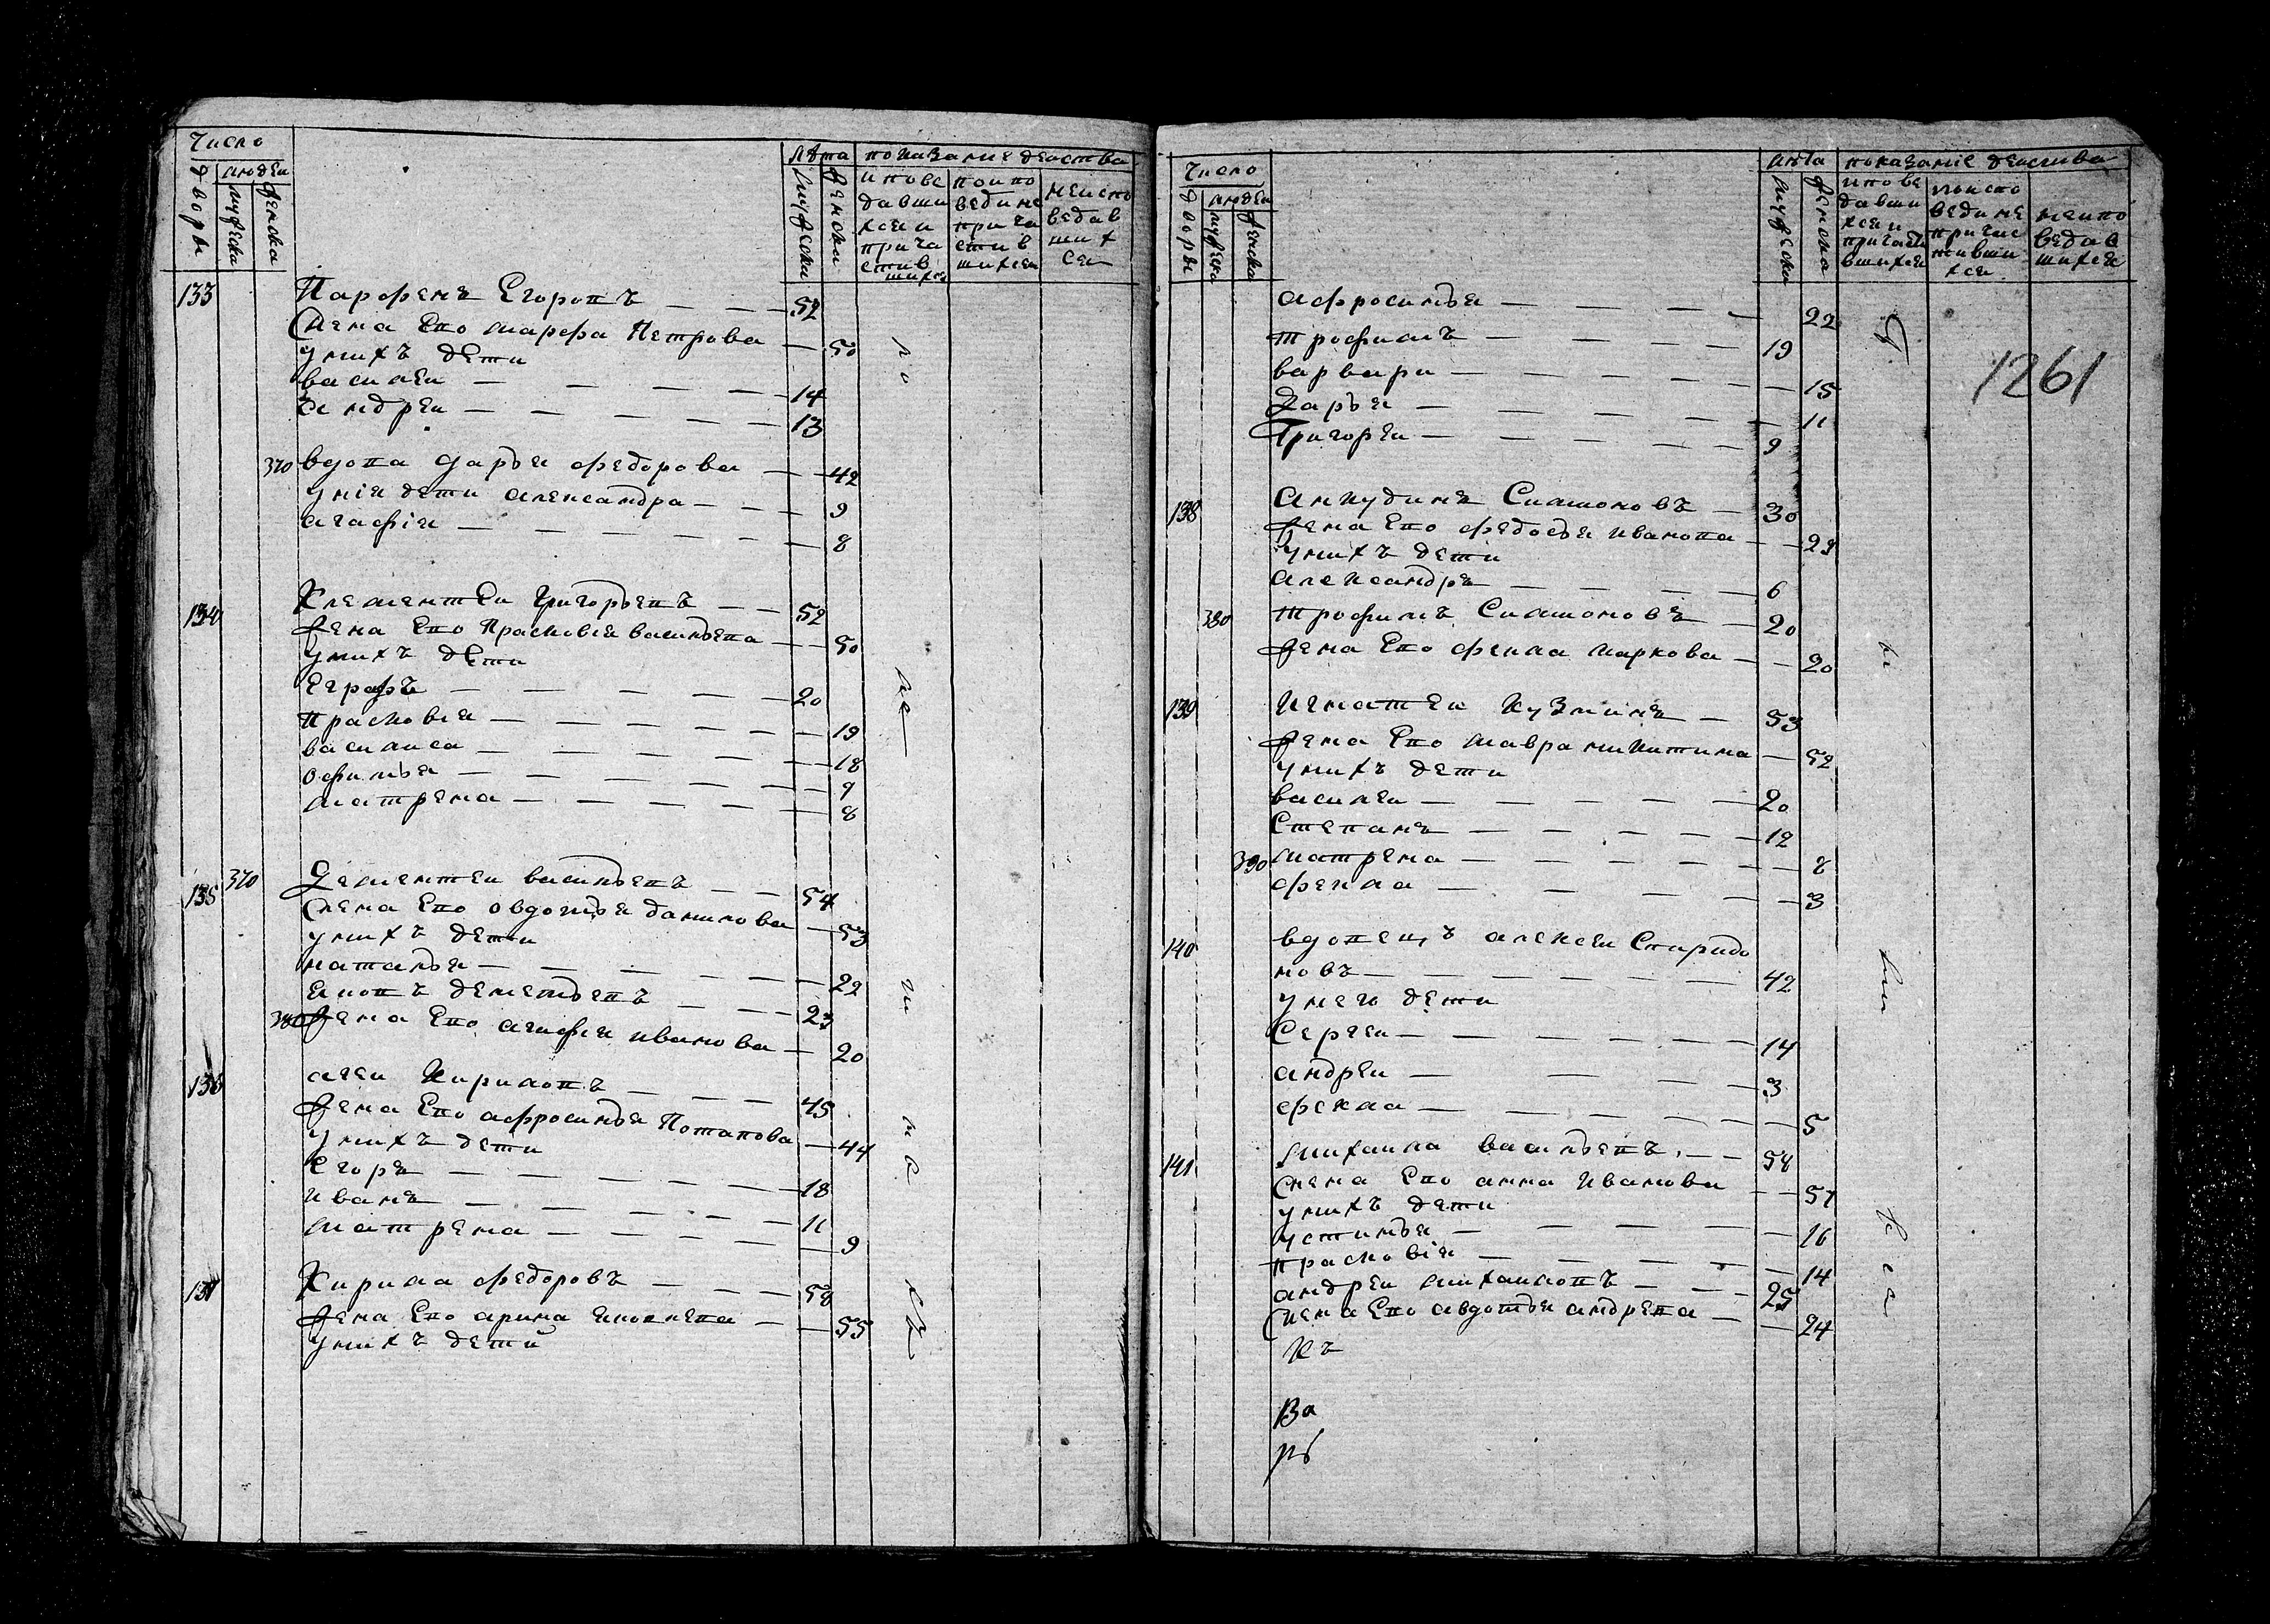 Число
людеи
дворы
мужеска
женска
лѣта
мужески
женски
показание деиства
испове
давши
хся и
прича
стив
шихся
по испо
веди не
прича
стив
шихся
не испо
ведав
ших
ся
133 Парфенъ Егоровъ — — — 52
Жена Ево марфа Петрова — 50
у нихъ дети
василеи — — — — 14
андреи — — — — — 13
370 вдова дарья федорова — — 42
у нея дети александра — — — 9
агафiя — — — — — 8
134 Клементеи Григорьевъ — — 52
жена Ево Прасковья васильева — — 50
у нихъ дети
Еграфъ — — — — — 20
прасковья — — — — — 19
василиса — — — — — 18
офимья — — — — — 9
матрена — — — — — 8
135 370 Дементеи васильевъ — — 54
Жена Ево овдотья данилова — 53
у нихъ дети
наталья — — — — — 22
Яковъ дементьевъ — — — 23
380 жена Ево агафья иванова — 20
136 агеи Кириловъ — — — 45
жена Ево афросинья Потапова — 44
у нихъ дети
Егоръ — — — — — 18
иванъ — — — — — 11
матрена — — — — — 9
137 Кирила федоровъ — — — 58
жена Ево арина яковлева — — 55
у нихъ дети
Число
людеи
дворы
мужеска
женска
лѣта
мужески
женски
показанiе деиства
испове
давши
хся и
причасти
вшихся
по испо
веди не
причас
тивши
хся
не испо
ведав
шихся
1261
афросинья — — — — 22
трофимъ — — — — 19
варвара — — — — — 15
Дарья — — — — — 11
Григореи — — — — — 9
138 Анкудинъ Симоновъ — 30
жена Ево федосья иванова — — 29
у нихъ дети
александръ — — — — 6
380 трофимъ Симоновъ — 20
жена Ево фекла маркова — — 20
139 Игнатеи Кузминъ — 53
жена Ево мавра никитина — 52
у нихъ дети
василеи — — — — — 20
Степанъ — — — — — 12
390 матрена — — — — — 8
фекла — — — — — 3
140 вдовецъ алексеи Спиридо
новъ — — — — — 42
у него дети
Сергеи — — — — — 14
андреи — — — — 3
фекла — — — — — 5
141 михаила васильевъ — — 58
Жена Ево анна Иванова — — 57
у нихъ дети
устинья — — — — — 16
прасковiя — — — — — 14
андреи михаиловъ — — — 25
Жена Ево авдотья андрева — — 24
Къ